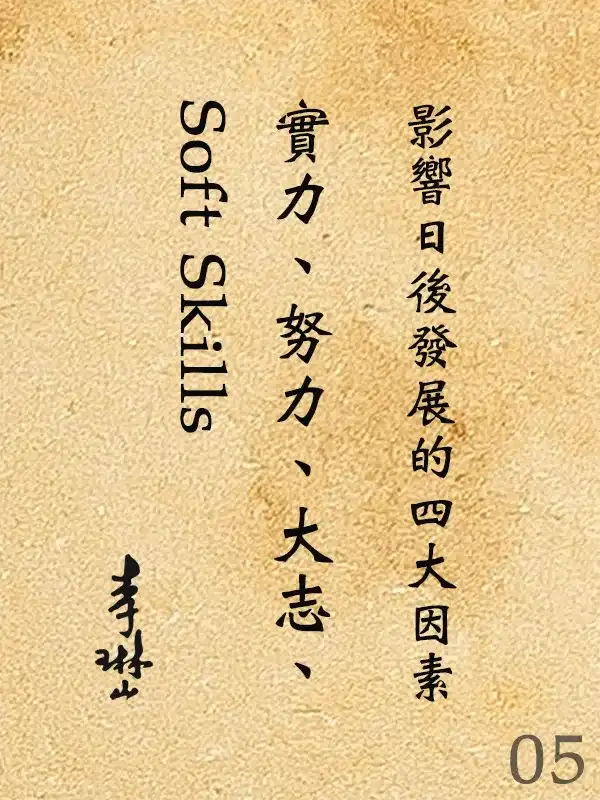 影響日後發展的四大因素
實力、努力、大志、
Soft Skills
李琳山
05